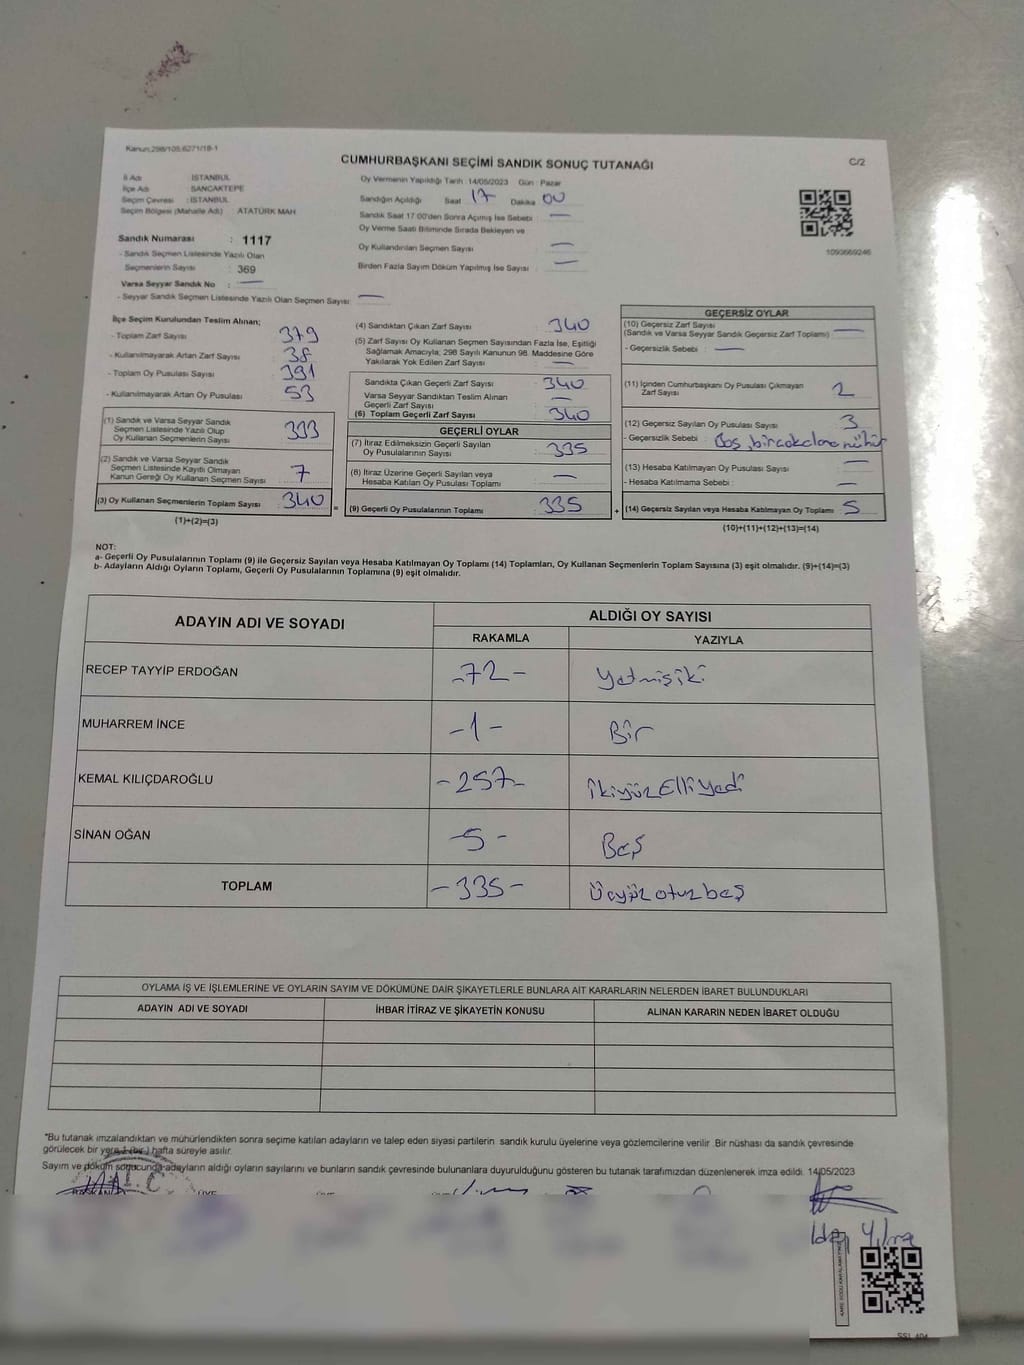 Kanun:298/105;6271/18-1
CUMHURBAŞKANI SEÇİMİ SANDIK SONUÇ TUTANAĞI
C/2
İl Adı : İSTANBUL
İlçe Adı : SANCAKTEPE
Seçim Çevresi : İSTANBUL
Seçim Bölgesi (Mahalle Adı) : ATATÜRK MAH
Oy Vermenin Yapıldığı Tarih : 14/05/2023 Gün : Pazar
Sandığın Açıldığı Saat 17 Dakika 00
Sandık Saat 17:00'den Sonra Açımış İse Sebebi : —
Oy Verme Saati Bitiminde Sırada Bekleyen ve
Oy Kullandırılan Seçmen Sayısı : —
Birden Fazla Sayım Döküm Yapılmış İse Sayısı : —
1093669246
Sandık Numarası : 1117
- Sandık Seçmen Listesinde Yazılı Olan
Seçmenlerin Sayısı : 369
Varsa Seyyar Sandık No : —
- Seyyar Sandık Seçmen Listesinde Yazılı Olan Seçmen Sayısı : —
İlçe Seçim Kurulundan Teslim Alınan;
- Toplam Zarf Sayısı : 379
- Kullanılmayarak Artan Zarf Sayısı : 38
- Toplam Oy Pusulası Sayısı : 391
- Kullanılmayarak Artan Oy Pusulası : 53
(1) Sandık ve Varsa Seyyar Sandık
Seçmen Listesinde Yazılı Olup
Oy Kullanan Seçmenlerin Sayısı : 333
(2) Sandık ve Varsa Seyyar Sandık
Seçmen Listesinde Kayıtlı Olmayan
Kanun Gereği Oy Kullanan Seçmen Sayısı : 7
(3) Oy Kullanan Seçmenlerin Toplam Sayısı : 340
(1)+(2)=(3)
(4) Sandıktan Çıkan Zarf Sayısı : 340
(5) Zarf Sayısı Oy Kullanan Seçmen Sayısından Fazla İse, Eşitliği
Sağlamak Amacıyla; 298 Sayılı Kanunun 98. Maddesine Göre
Yakılarak Yok Edilen Zarf Sayısı : —
Sandıkta Çıkan Geçerli Zarf Sayısı : 340
Varsa Seyyar Sandıktan Teslim Alınan
Geçerli Zarf Sayısı : —
(6) Toplam Geçerli Zarf Sayısı : 340
GEÇERLİ OYLAR
(7) İtiraz Edilmeksizin Geçerli Sayılan
Oy Pusulalarının Sayısı : 335
(8) İtiraz Üzerine Geçerli Sayılan veya
Hesaba Katılan Oy Pusulası Toplamı : —
= (9) Geçerli Oy Pusulalarının Toplamı : 335
GEÇERSİZ OYLAR
(10) Geçersiz Zarf Sayısı
(Sandık ve Varsa Seyyar Sandık Geçersiz Zarf Toplamı) : —
- Geçersizlik Sebebi : —
(11) İçinden Cumhurbaşkanı Oy Pusulası Çıkmayan
Zarf Sayısı : 2
(12) Geçersiz Sayılan Oy Pusulası Sayısı : 3
- Geçersizlik Sebebi : Boş,
(13) Hesaba Katılmayan Oy Pusulası Sayısı : —
- Hesaba Katılmama Sebebi : —
+ (14) Geçersiz Sayılan veya Hesaba Katılmayan Oy Toplamı : 5
(10)+(11)+(12)+(13)=(14)
NOT:
a- Geçerli Oy Pusulalarının Toplamı (9) ile Geçersiz Sayılan veya Hesaba Katılmayan Oy Toplamı (14) Toplamları, Oy Kullanan Seçmenlerin Toplam Sayısına (3) eşit olmalıdır. (9)+(14)=(3)
b- Adayların Aldığı Oyların Toplamı, Geçerli Oy Pusulalarının Toplamına (9) eşit olmalıdır.
ADAYIN ADI VE SOYADI
ALDIĞI OY SAYISI
RAKAMLA YAZIYLA
RECEP TAYYİP ERDOĞAN -72- Yetmişiki
MUHARREM İNCE -1- Bir
KEMAL KILIÇDAROĞLU -257- İkiyüzElliyedi
SİNAN OĞAN -5- Beş
TOPLAM -335- Üçyüzotuzbeş
OYLAMA İŞ VE İŞLEMLERİNE VE OYLARIN SAYIM VE DÖKÜMÜNE DAİR ŞİKAYETLERLE BUNLARA AİT KARARLARIN NELERDEN İBARET BULUNDUKLARI
ADAYIN ADI VE SOYADI İHBAR İTİRAZ VE ŞİKAYETİN KONUSU ALINAN KARARIN NEDEN İBARET OLDUĞU
*Bu tutanak imzalandıktan ve mühürlendikten sonra seçime katılan adayların ve talep eden siyasi partilerin sandık kurulu üyelerine veya gözlemcilerine verilir. Bir nüshası da sandık çevresinde
görülecek bir yere 1 (bir) hafta süreyle asılır.
Sayım ve döküm sonucunda adayların aldığı oyların sayılarını ve bunların sandık çevresinde bulunanlara duyurulduğunu gösteren bu tutanak tarafımızdan düzenlenerek imza edildi. 14/05/2023
BAŞKAN ÜYE